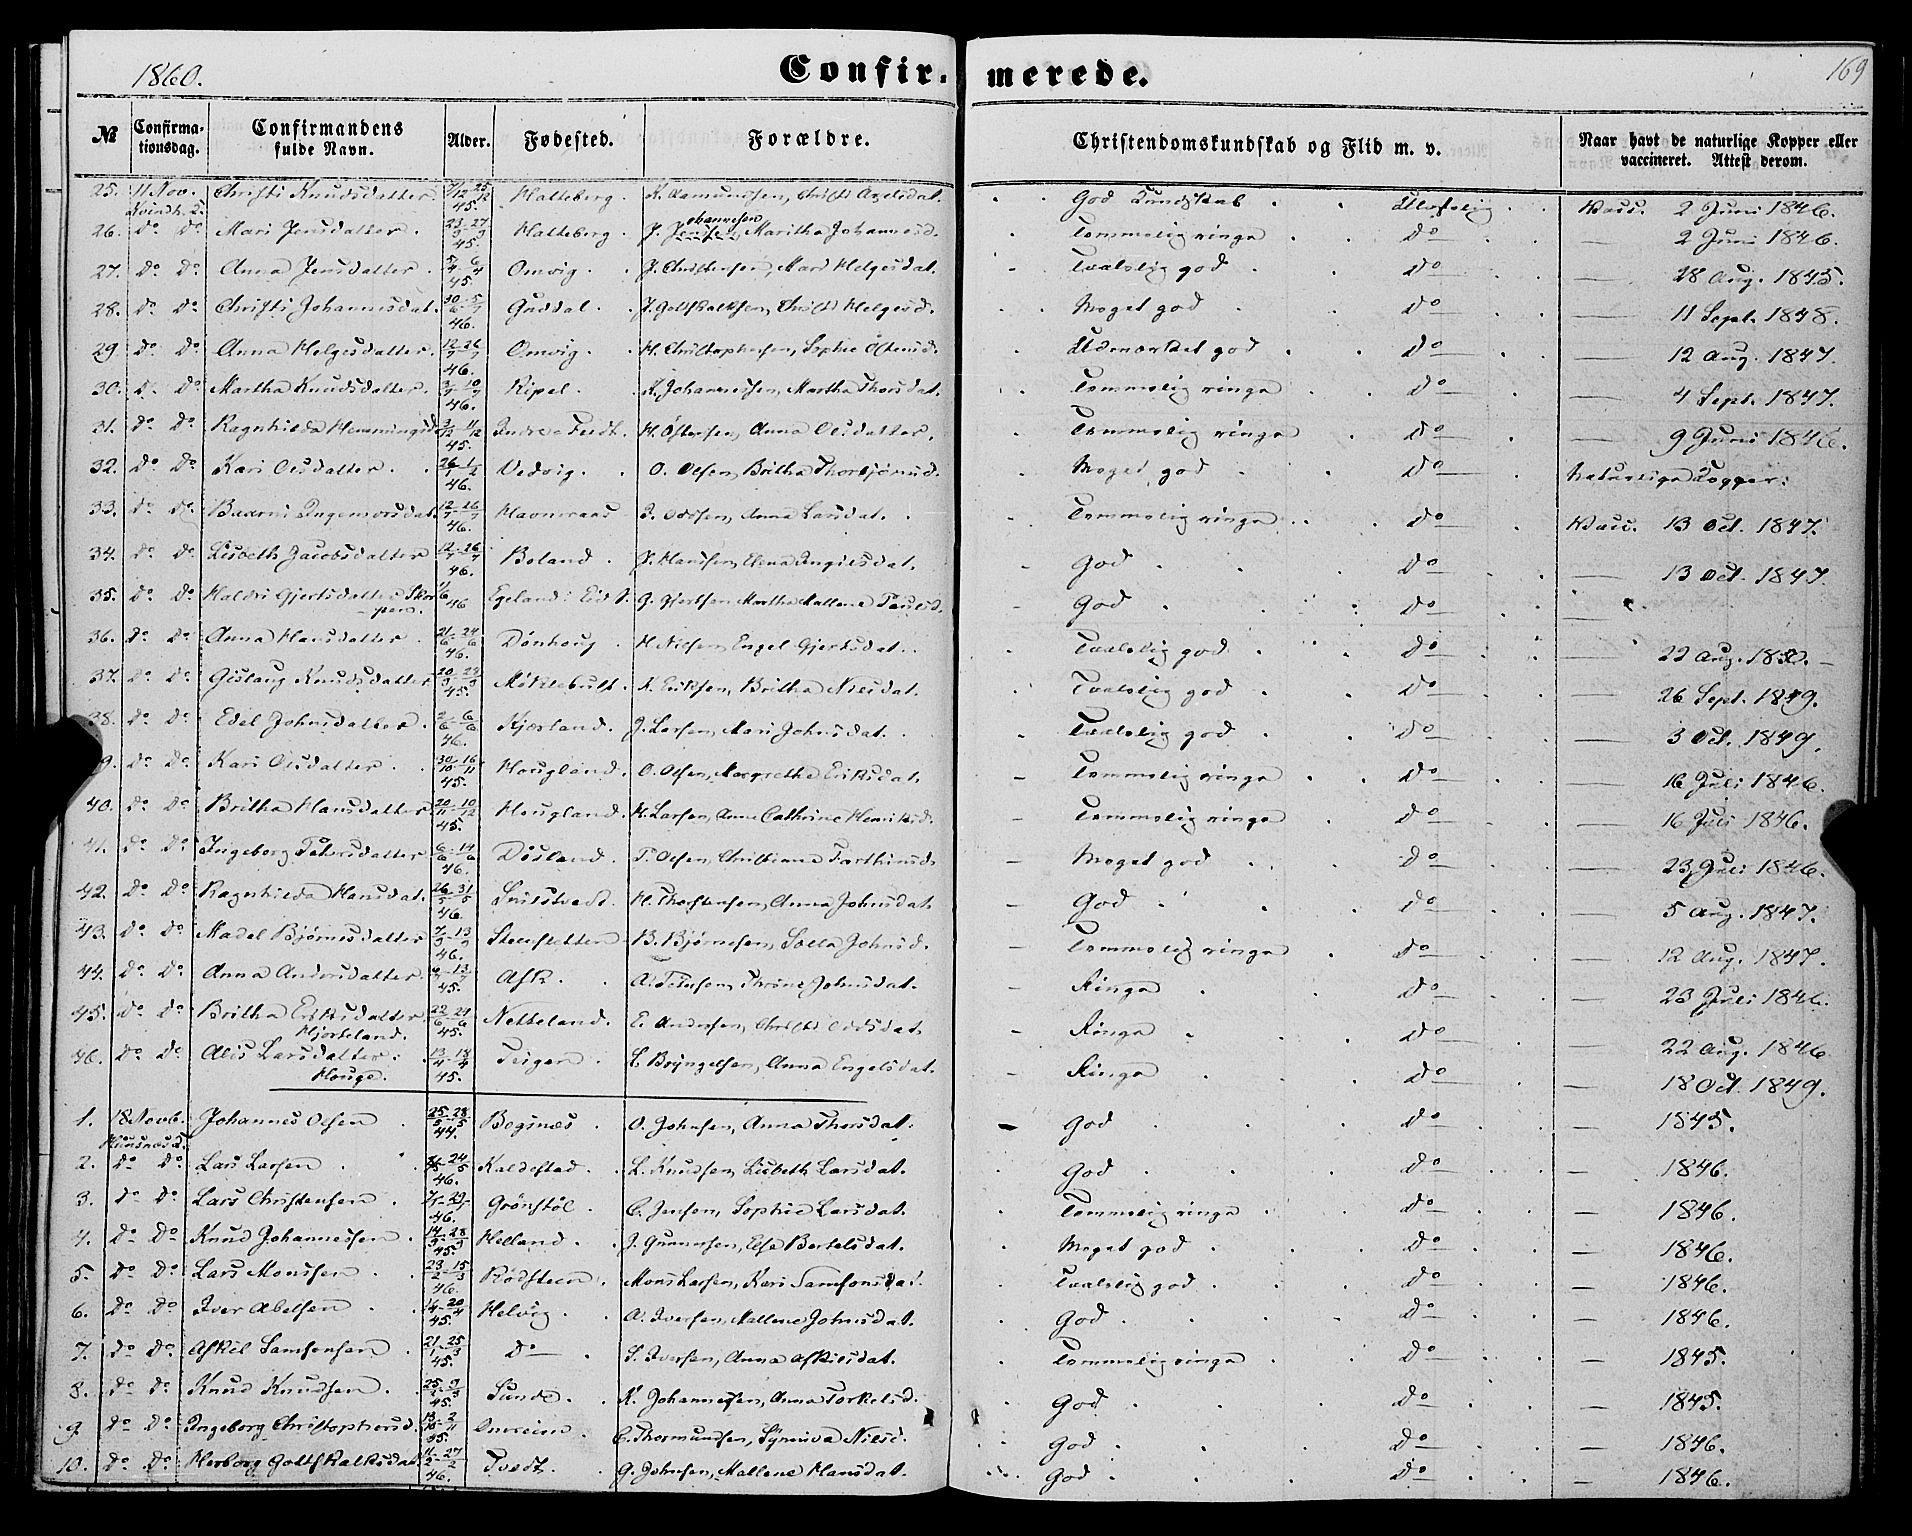 1860.
Confir- merede.
169
№ Confirma-tionsdag. Confirmandens fulde Navn. Alder. Fødested. Forældre. Christendomskundskab og Flid m. v. Naar havt de naturlige Kopper eller vaccineret. Attest derom.
25. 11 Nov. Christi Knudsdatter 45. Halteberg. God Kundskab Vacc. 2 Juni 1846.
26. do do Mari Jensdatter. 23/3 27/3 45. Halteberg. J. Jensen, Maritha Johannesd. Temmelig ringe do — 2 Juni 1846.
27. do do Anna Jensdatter. 45. Omvig. J. Christensen, Mari Helgesdat. Tvalelig god do — 28 Aug. 1845.
28. do do Christi Johannesdat. 30/6 5/7 46. Guddal. J. Gotskalksen, Christi Helgesd. Meget god do — 11 Sept. 1848.
29 do do Anna Helgesdatter. 12/7 26/7 46. Omvig. H. Christophersen, Sophie Østensd. Udmærket god do — 12 Aug. 1847.
30. do do Martha Knudsdatter. 46. Ripel. K. Johannessen, Martha Thorsdat. Temmelig ringe do — 4 Sept. 1847.
31. do do Ragnhilda Hemmingsd. 45. Indre Tvedt. H. Østensen, Anna Olsdatter. Temmelig ringe do — 9 Juni 1846.
32. do do Kari Olsdatter. 26/1 1/2 46. Vedvig. O. Olsen, Britha Thorbjørnsd. Meget god do Naturlige Kopper.
33. do do Ingemorsdat. 12/7 26/7 46. Havneraas Anna Larsdat. Temmelig ringe do Vacc. 13 Oct. 1847.
34. do do Lisbeth Jacobsdatter 12/7 26/7 46. Boland. J. Hansen, Elena Ingilsdat. God do — 13 Oct. 1847.
35. do do Haldri Gjertsdatter Skorpen. 46 Egeland: Eid S. G. Gjertsen Martha Mallene Paulsd. God do —
36. do do Anna Hansdatter. 21/6 24/6 46. Dønhoug. H. Nilsen, Engel Gjertsdat. Tvalelig god do — 22 Aug.
37. do do Gislaug Knudsdatter 20/3 23/3 45. Møklebust. K. Eriksen, Britha Nilsdat. Tvalelig god do — 26 Sept. 1849.
38. do do Edel Johnsdatter. 2/6 6/6 46. Kjærland. J. Larsen, Mari Johnsdat. Tvalelig god do — 3 Oct. 1849.
9. do do Kari Olsdatter. 30/10 16/11 45. Hougland. O. Olsen, Margretha Eriksdat. Temmelig ringe do — 16 Juli 1846.
40. do do Britha Hansdatter 20/11 10/12 45. Hougland. H. Larsen, Anne Cathrine Henriksd. Temmelig ringe do — 16 Juli 1846.
41. do do Ingeborg Petersdatter 6/6 14/6 46. Døsland. P. Olsen, Christiane Torthinusd. Meget god do — 23 Juli 1846.
42. do do Ragnhilda Hansdat. 26/5 31/5 46. H. Thorstensen, Anna Johnsdat. God do — 5 Aug. 1847.
43. do do Madel Bjørnesdatter 7/3 13/3 46. B. Bjørnesen, Johnsd. Temmelig ringe do — 12 Aug. 1847.
44. do do Anna Andersdatter. 45. Ask. A. Thrine Johnsdat. Ringe do — 23 Juli 1846.
45. do do Britha Eriksdatter Hjorteland. 22/6 29/6 45. Netteland. E. Andersen, Christi Oddsdat. Ringe do — 22 Aug. 1846
46. do do Alis Larsdatter Houge. 13/4 18/4 45. Teigen. L. Bryngelsen, Anna Engelsdat. Ringe do — 18 Oct. 1849.
1. 18 Novb. Johannes Olsen 25/5 28/5 44. Bogsnæs. O. Johnsen, Anna Thorsdat. God do — 1845.
2. do do Lars Larsen 46. Kaldestad. L. Knudsen, Lisbeth Larsdat. God do — 1846.
3. do do Lars Christensen 46. Grønstøl. C. Jensen, Sophie Larsdat. Temmelig ringe do — 1846.
4. do do Knud Johannessen. 14/9 28/9 45. Helland. J. Gunnesen, Else Bertelsdat. Meget god do — 1846.
5. do do Lars Monssen 23/2 15/3 46. Rødsteen. Mons Larsen, Kari Samsonsdat. Tvalelig god do — 1846.
6. do do Iver Abelsen 45. Helvig. A. Iversen, Mallene Johnsdat. God do — 1846.
7. do do Askil Samsonsen 21/1 25/3 45. do S. Iversen, Anna Askilsdat. Temmelig ringe do — 1845.
8. do do Knud Knudsen 45. Sunde. K. Johannesen, Anna Torkelsd. God do — 1845.
9. do do Ingeborg Christophersd. 45. Omreim. C. Thormundsen, Synneva Nilsd. God do — 1846.
10. do do Herborg Gotskalksdat. 46. Tvedt. G. Johnsen, Mallene Hansdat. God do — 1846.